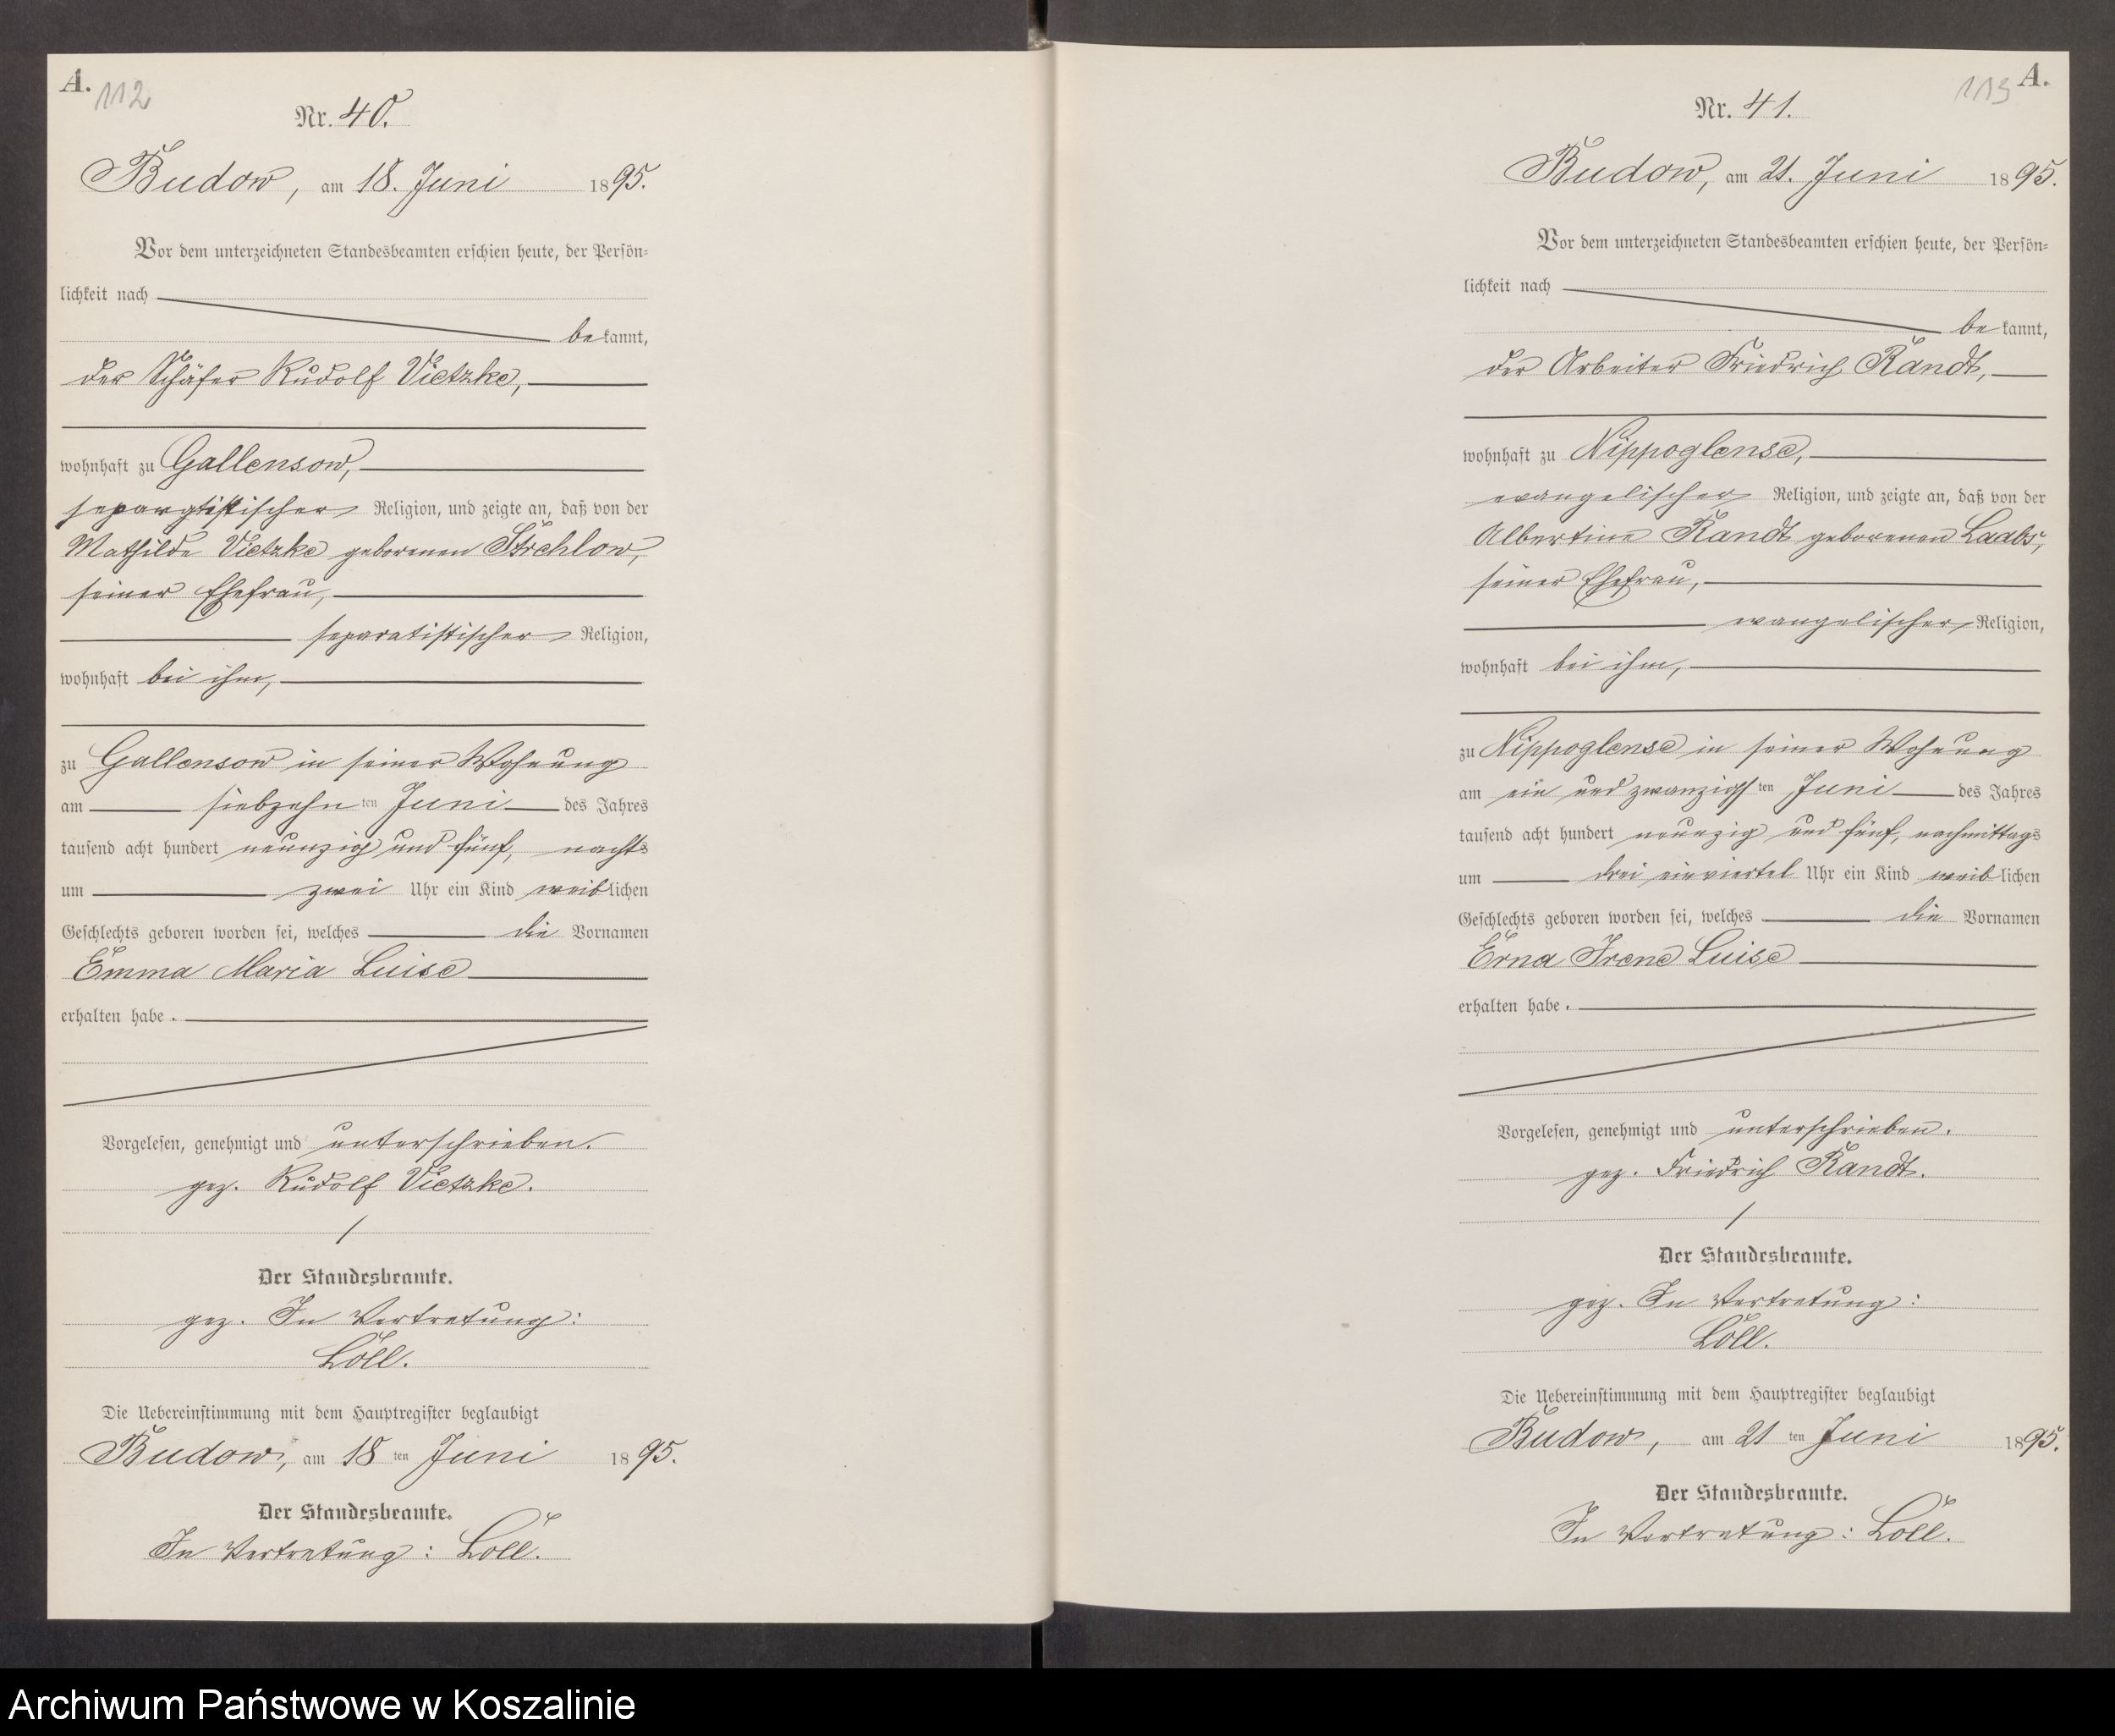 A.
112
Nr. 40.
Budow, am 18. Juni 1895.
Vor dem unterzeichneten Standesbeamten erschien heute, der Persön-
lichkeit nach
bekannt,
der Schäfer Rudolf Vietzke,
wohnhaft zu Gallensow,
separatistischer Religion, und zeigte an, daß von der
Mathilde Vietzke geborenen Strehlow,
seiner Ehefrau,
separatistischer Religion,
wohnhaft bei ihm,
zu Gallensow in seiner Wohnung
am siebzehnten Juni des Jahres
tausend acht hundert neunzig und fünf, nachts
um zwei Uhr ein Kind weiblichen
Geschlechts geboren worden sei, welches die Vornamen
Emma Maria Luise
erhalten habe.
Vorgelesen, genehmigt und unterschrieben.
gez. Rudolf Vietzke.
Der Standesbeamte.
gez. In Vertretung:
Löll.
Die Uebereinstimmung mit dem Hauptregister beglaubigt
Budow, am 18ten Juni 1895.
Der Standesbeamte.
In Vertretung: Löll.
113
A.
Nr. 41.
Budow, am 21. Juni 1895.
Vor dem unterzeichneten Standesbeamten erschien heute, der Persön-
lichkeit nach
bekannt,
der Arbeiter Friedrich Randt,
wohnhaft zu Nippoglense,
evangelischer Religion, und zeigte an, daß von der
Albertine Randt geborenen Laabs,
seiner Ehefrau,
evangelischer Religion,
wohnhaft bei ihm,
zu Nippoglense in seiner Wohnung
am ein und zwanzigsten Juni des Jahres
tausend acht hundert neunzig und fünf, nachmittags
um drei einviertel Uhr ein Kind weiblichen
Geschlechts geboren worden sei, welches die Vornamen
Erna Irene Luise
erhalten habe.
Vorgelesen, genehmigt und unterschrieben.
gez. Friedrich Randt.
Der Standesbeamte.
gez. In Vertretung:
Löll.
Die Uebereinstimmung mit dem Hauptregister beglaubigt
Budow, am 21ten Juni 1895.
Der Standesbeamte.
In Vertretung: Löll.
Archiwum Państwowe w Koszalinie